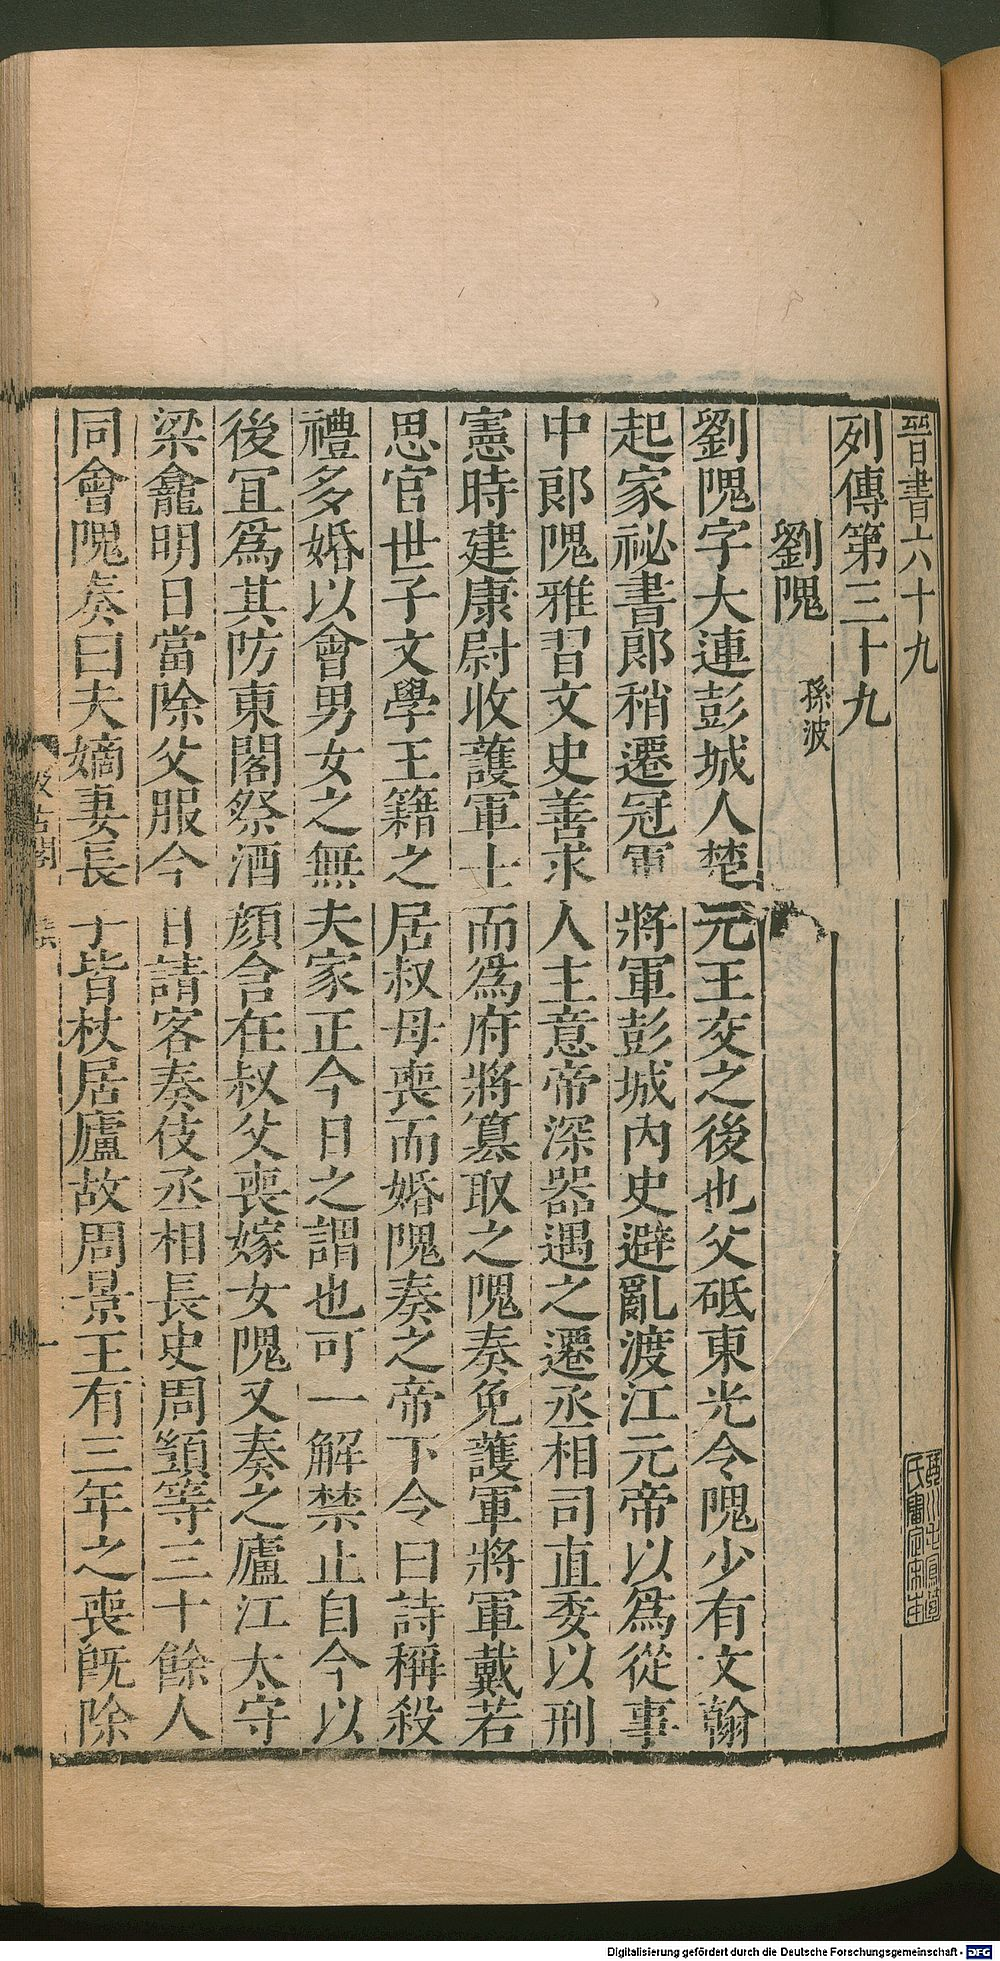 晉書六十九
列傳第三十九
劉隗 孫波
劉隗字大連彭城人楚元王交之後也父砥東光令隗少有文翰
起家祕書郎稍遷冠軍將軍彭城內史避亂渡江元帝以爲從事
中郎隗雅習文史善求人主意帝深器遇之遷丞相司直委以刑
憲時建康尉收護軍士而爲府將篡取之隗奏免護軍將軍戴若
思官世子文學王籍之居叔母喪而婚隗奏之帝下令曰詩稱殺
禮多婚以會男女之無夫家正今日之謂也可一解禁止自今以
後冝爲其防東閣祭酒顔含在叔父喪嫁女隗又奏之廬江太守
梁龕明日當除父服今日請客奏伎丞相長史周顗等三十餘人
同會隗奏曰夫嫡妻長子皆杖居廬故周景王有三年之喪旣除
一
氏審定宋本
Digitalisierung gefördert durch die Deutsche Forschungsgemeinschaft - DFG